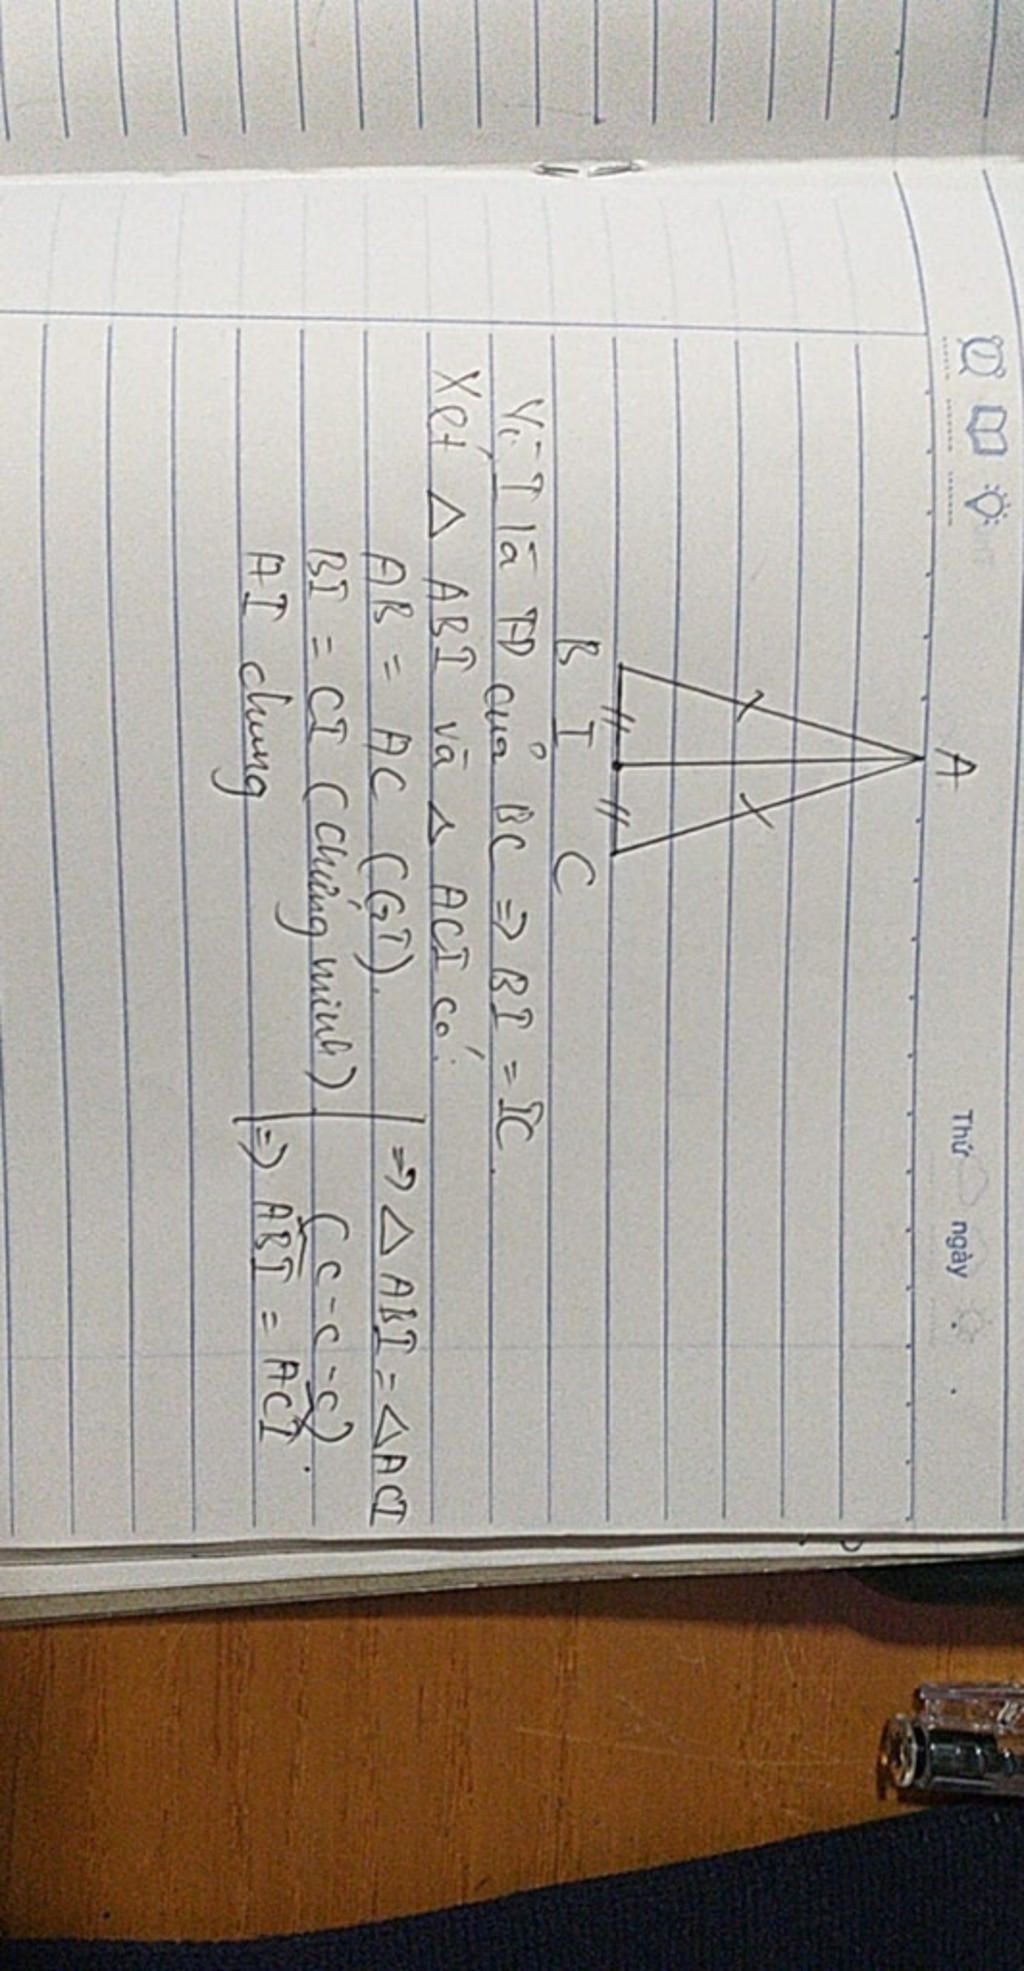 Thứ ngày
A
B I C
Vì I là TĐ của BC => BI = IC.
Xét △ ABI và △ ACI có:
AB = AC (GT). => △ ABI = △ ACI
BI = CI (chứng minh) (c-c-c).
AI chung => ABI = ACI